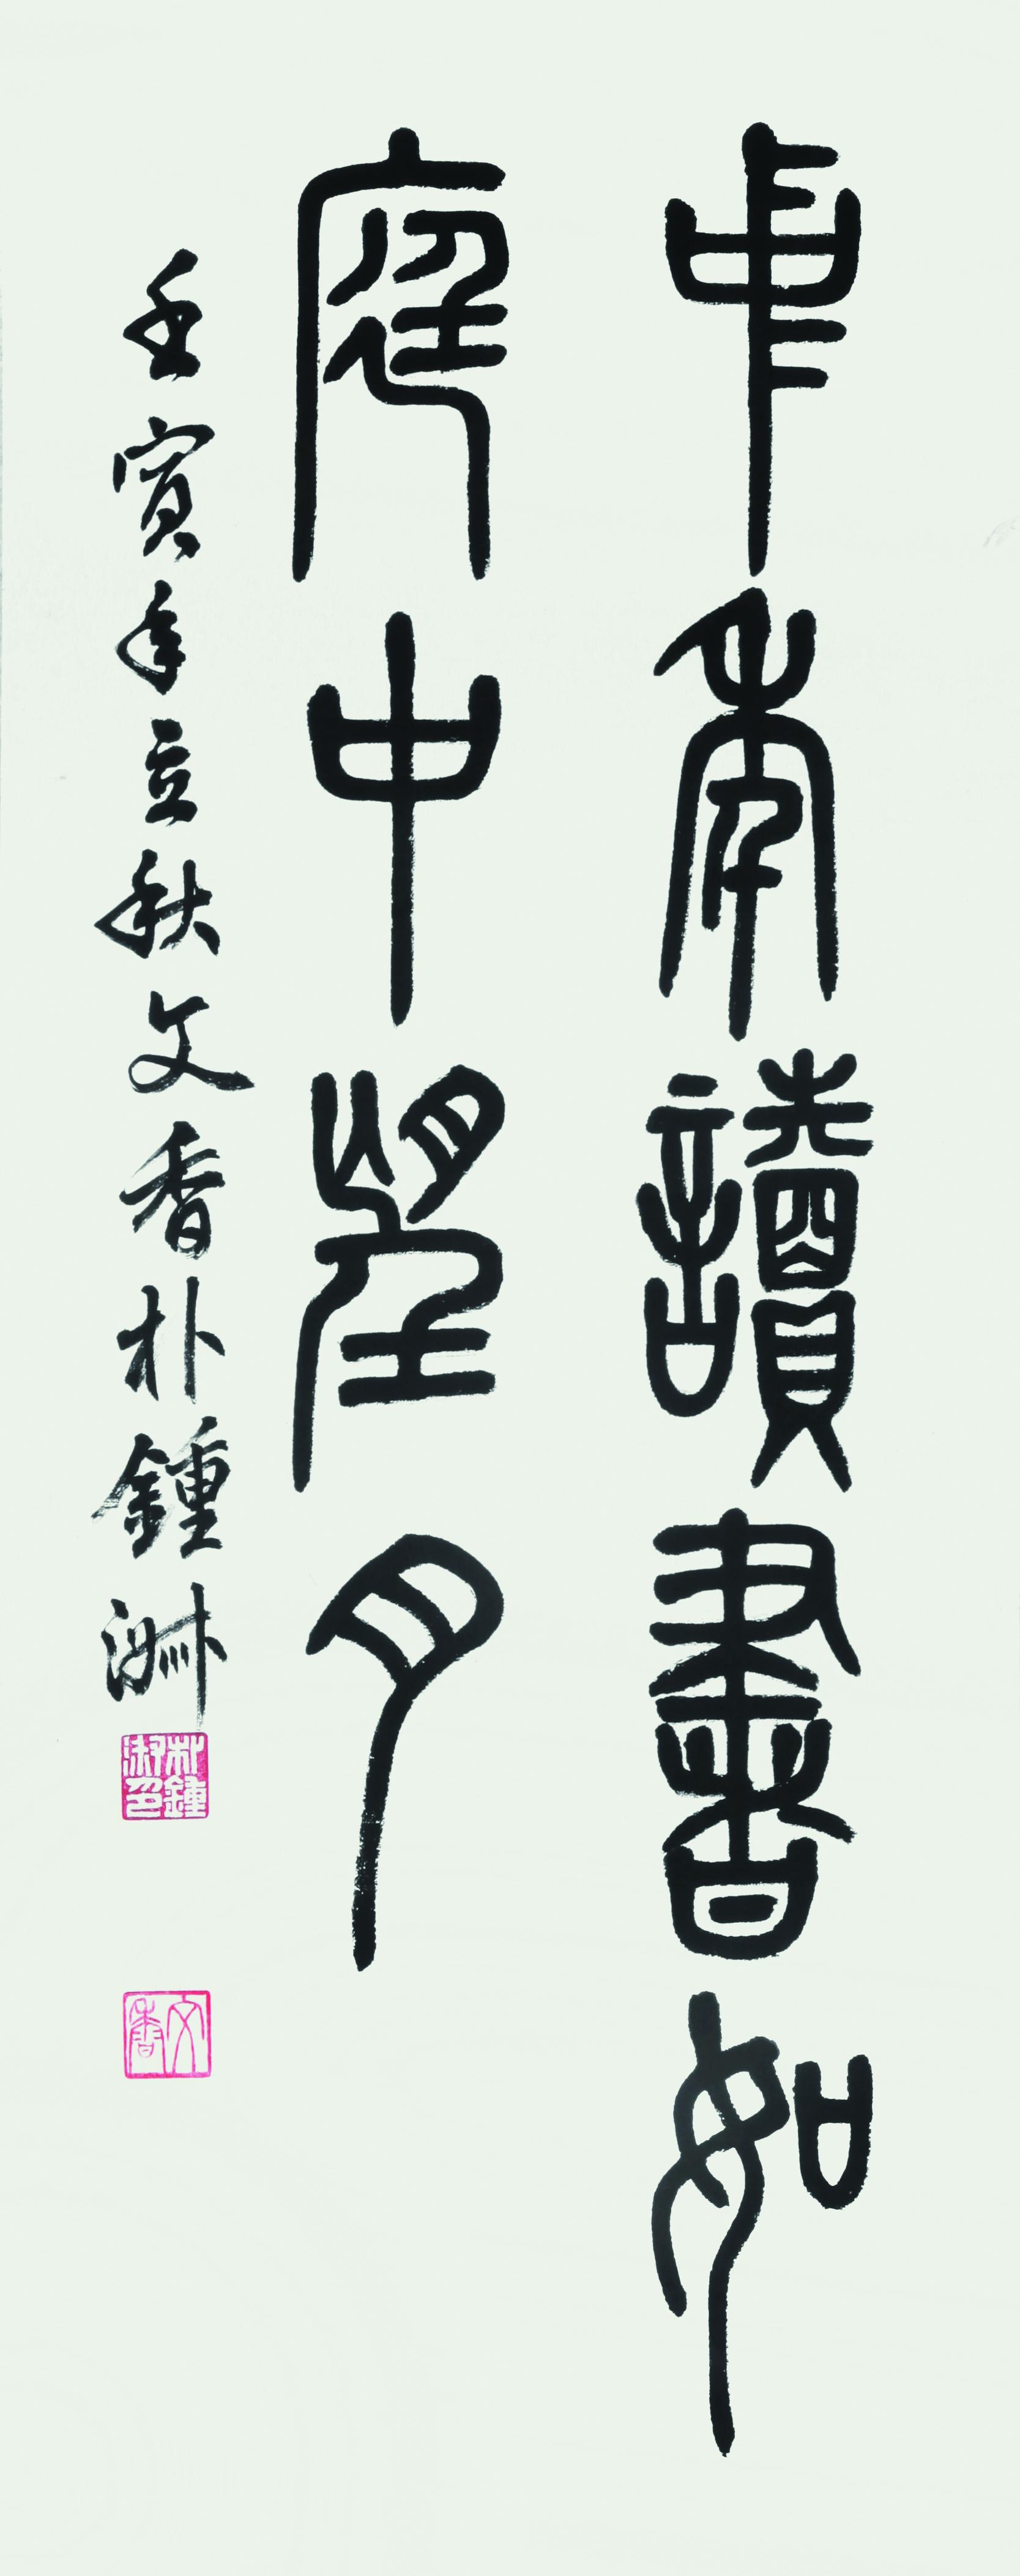 中年讀書如
庭中望月
壬寅年立秋文香朴鍾淋
朴鍾淑印
文香